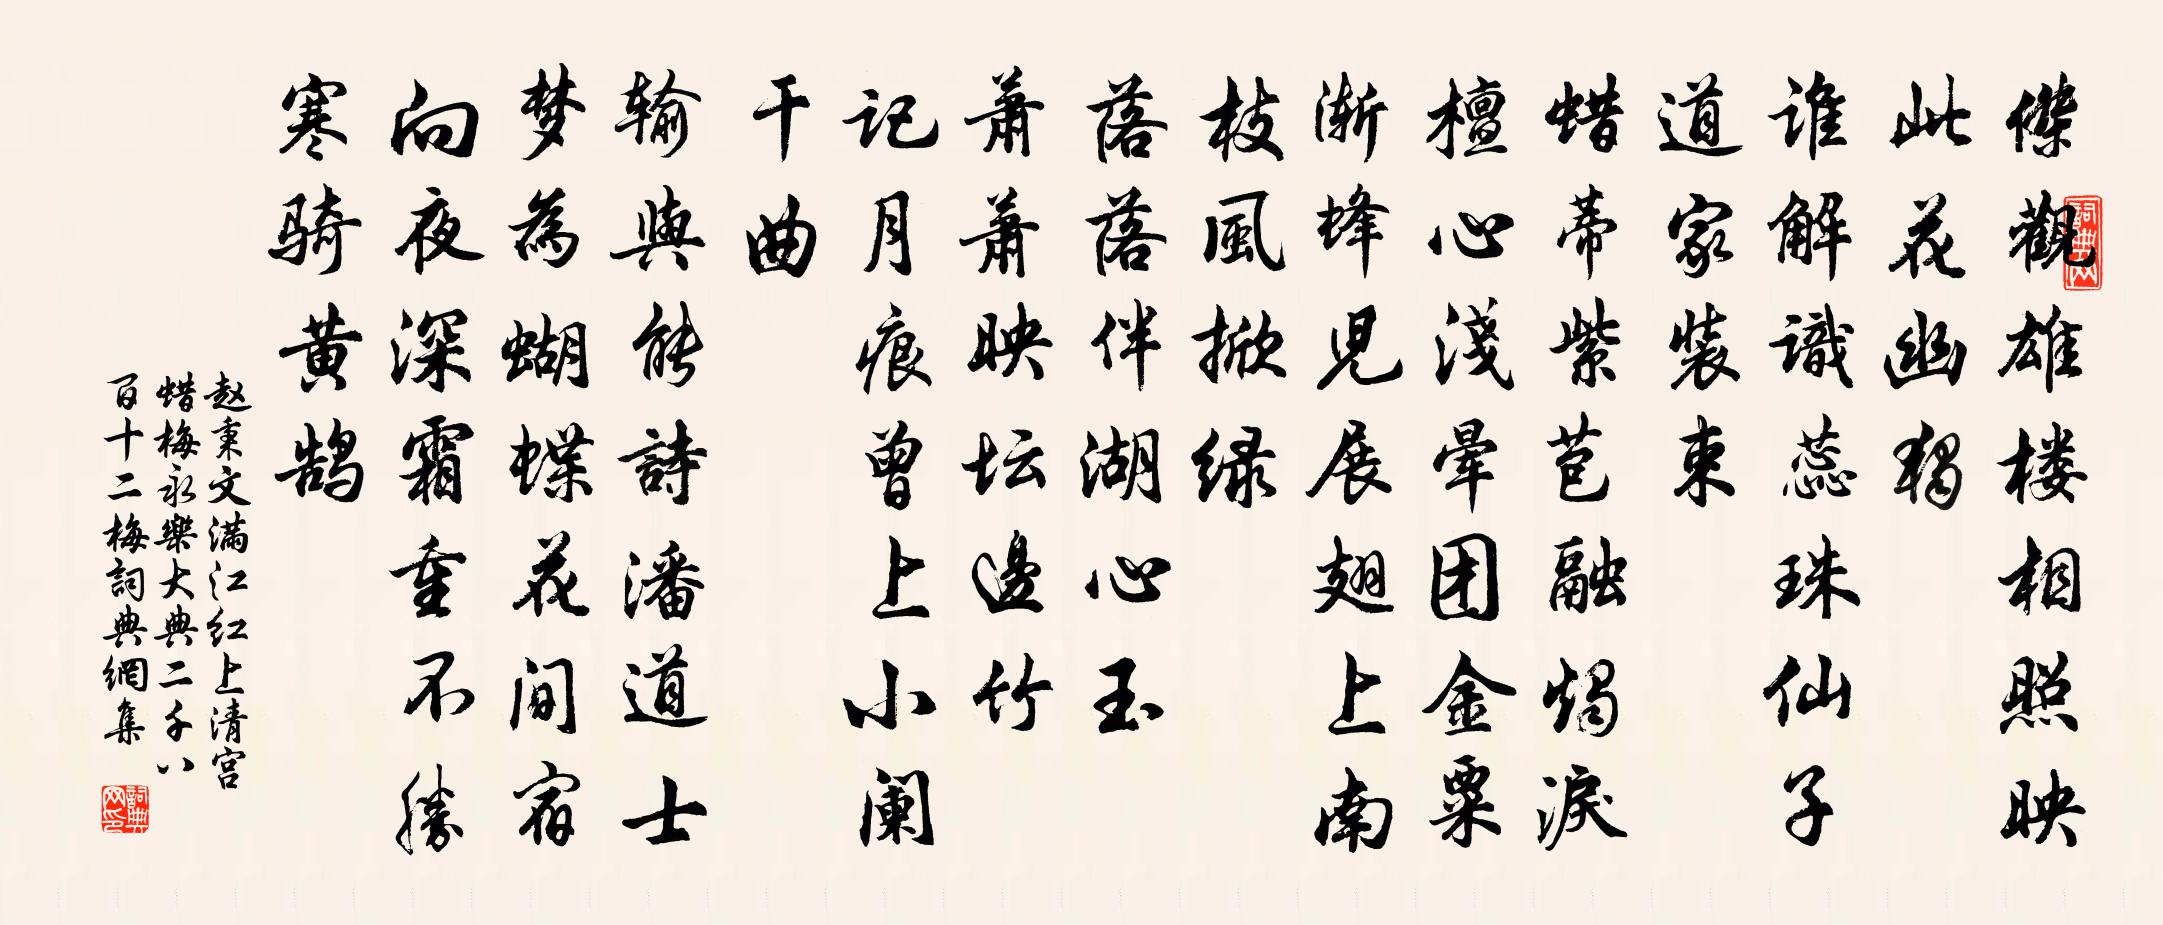 傑觀雄楼相照映
此花幽獨
谁解識蕊珠仙子
道家装束
蜡蒂紫苞融燭淚
檀心淺暈团金粟
渐蜂児展翅上南
枝風掀绿
落落伴湖心玉
萧萧映坛邊竹
记月痕曾上小阑
干曲
输與能詩潘道士
梦為蝴蝶花间宿
向夜深霜重不勝
寒骑黄鹄
赵秉文满江红上清宫
蜡梅永樂大典二千八
百十二梅詞典網集
詞典网
詞典网印